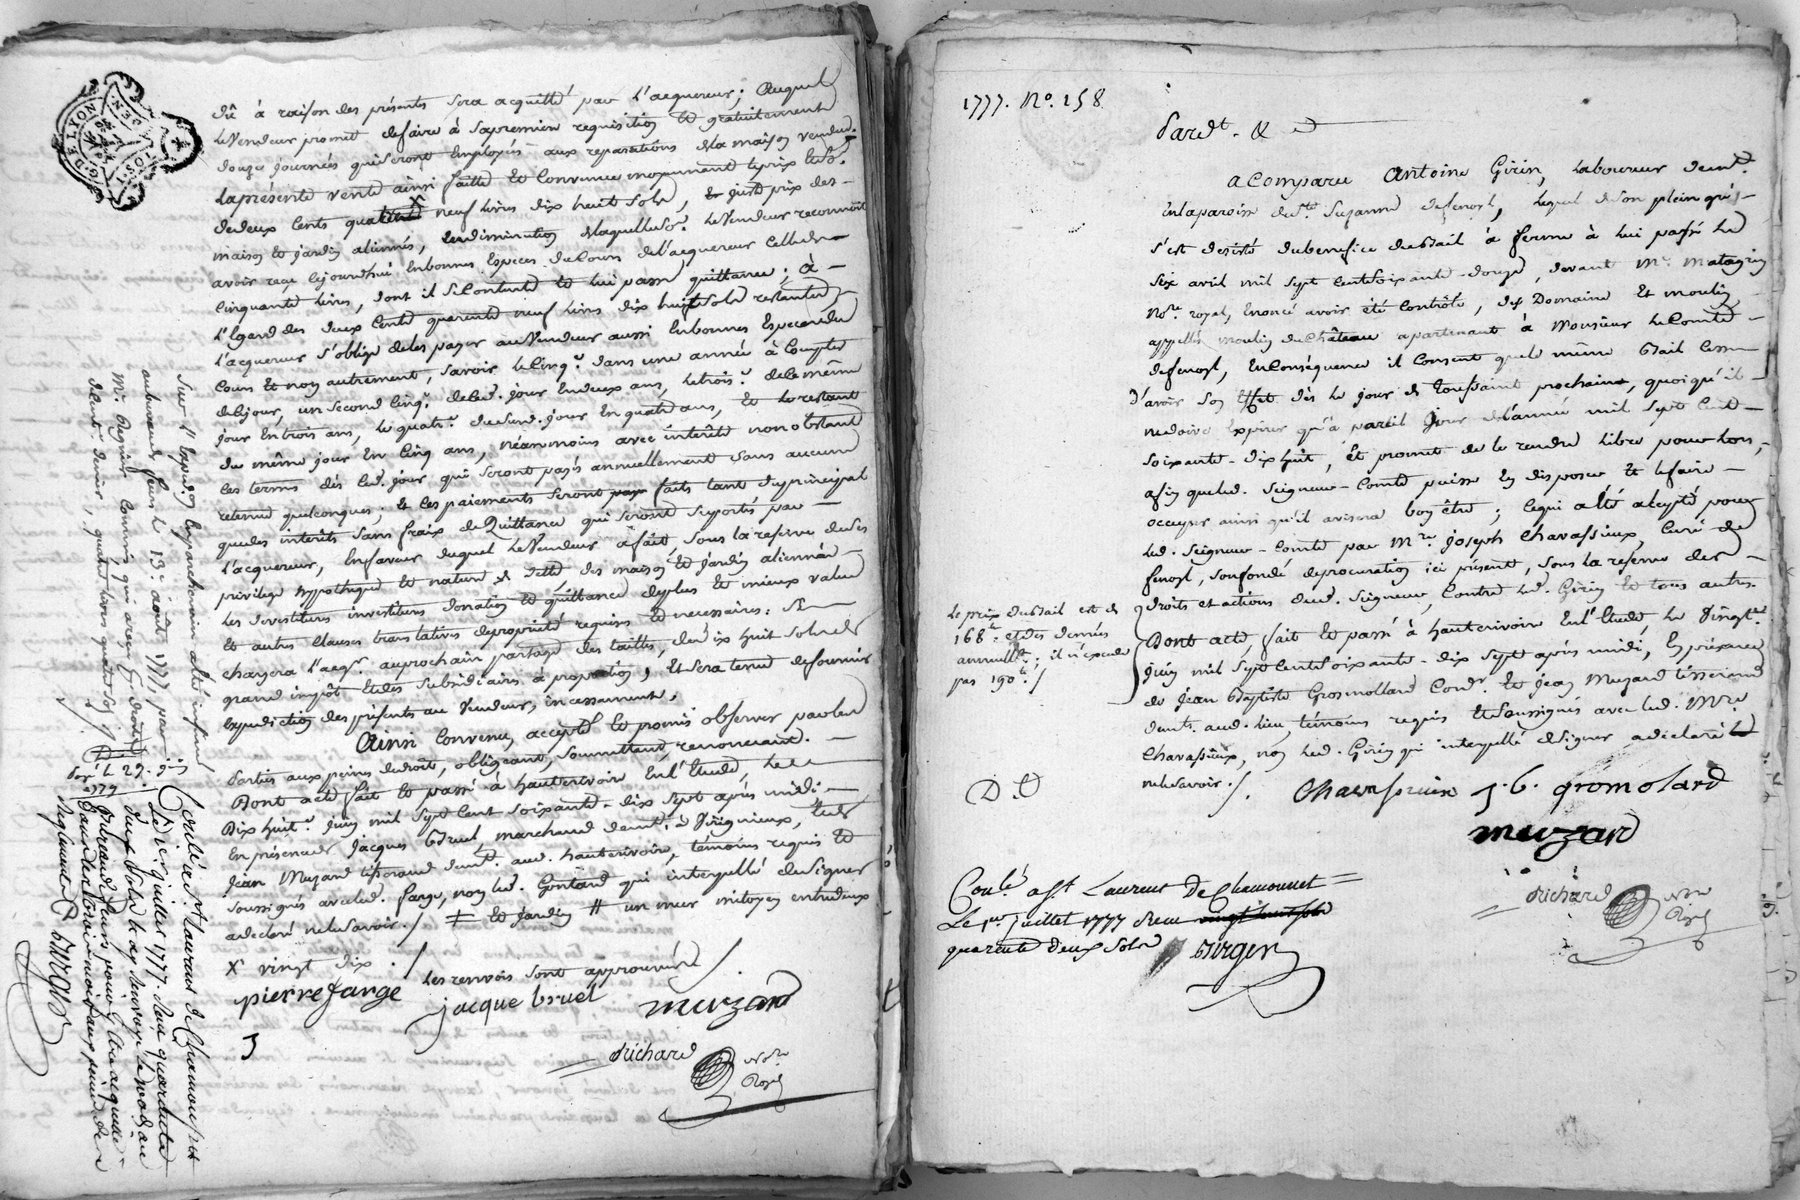 dû à raison des présentes sera acquitté par l'acquereur; Auquel
le Vendeur promet de faire à sa premiere requisition et gratuitement
douze journées qui seront Employés aux reparations de la maison vendue.
La présente vente ainsi faitte et Convenue moyennant le prix et so.e
de deux Cents quarante neuf livres dix huit sols, juste prix des
maison et jardin aliennés, en diminution de laquelle so.e le Vendeur reconnoit
avoir reçu cejourd'hui En bonnes Especes du Cours de l'acquereur Celle de
Cinquante livres, dont il se Contente et lui passe quittance; à
l'Egard des deux Cents quarante neuf livres dix huit sols restantes,
l'acquereur s'oblige de les payer au Vendeur aussi En bonnes Especes du
Cours Et non autrement, savoir le Cinq.e dans une année à Compter
de Cejour, un second Cinq.e de Ced. jour En deux ans, le trois.e de le même
jour En trois ans, le quatr.e du sud. jour En quatre ans, et le restant
du même jour En Cinq ans, néanmoins avec intérêts nonobstant
les termes dès Ced. jour qui seront payés annuellement sans aucune
retenue quelconques; & les paiements seront faits tant du principal
que des intérêts sans fraix de Quittance qui seront suportés par
l'acquereur, En faveur duquel le Vendeur a fait sous la reserve de ses
privilege hypotheque et nature de dette des maison et jardin aliennés
les devestitures investitures donation et quittance de plus et mieux value
et autres clauses translatives de propriété requises et necessaires: se
chargera l'acq.r au prochain partage des tailles, de dix huit sols de
grand impôt et des subsidiaires a proportion, Et sera tenu de fournir
Expedition des présentes au Vendeur, incessamment.
Ainsi Convenu, accepté et promis observer par les
Parties aux peines de droit, obligeant, soumettant, renonceant.
Dont acte fait et passé à hauterivoire En l'Etude, le
Dix huit.e juin mil sept Cent soixante-dix sept après midi
En présence de Jacques Bruel, marchand demt. à Virignieux, et de
Jean Muzard tisserand demt. aud. hauterivoire, témoins requis et
soussignés avec led. farge, non led. Gontard qui interpellé de signer
a declaré ne le savoir./. ‡ et jardin # un mur mitoyen entre deux
X vingt dix ./ les renvois sont approuvés /.
pierre farge jacque bruel muzard
Richard Not.re Royal
3
G. DE LYON
Sur l'Expedi.on
au bureau de feurs le 13.e août 1777, par
M.r Commis, qui a reçu
Pay. le 29. juin 1779
Conlé à St Laurens de Chamousset
Le 1er juillet 1777. Reçu quarante
deux sols
Burger
1777. No. 158.
Pard.t &
a Comparu Antoine Girin, laboureur demt.
En la paroisse de Ste Suzanne de fenost, lequel de son plein gré,
s'est desisté du benefice du Bail à ferme à lui passé le
six avril mil sept Cent soixante-douze, devant Mr. Matagrin
No.re royal, Enoncé avoir été Contrôlé, des Domaine et moulin
appellés moulin du Château apartenant à Monsieur le Comte
de fenost, En Conséquence il Consent que le même Bail Cesse
d'avoir son Effet dès le jour de Toussaint prochaine, quoiqu'il
ne doive Expirer qu'à pareil jour de l'année mil sept Cent
soixante-dix huit, et promet de le rendre libre pour lors,
afin que led. Seigneur-Comte puisse En disposer et le faire
occuper ainsi qu'il avisera bon être; Cequi a été accepté pour
led. Seigneur-Comte par Mre. Joseph Chavassieux, Curé de
fenost, son fondé de procuration ici présent, sous la reserve des
droits et actions dud. Seigneur, Contre led. Girin et tous autres.
Dont acte, fait et passé à hauterivoire En l'Etude, le Vingt.e
juin mil sept Cent soixante-dix sept après midi, En présence
de Jean Baptiste Grosmollard Cord.r et Jean Muzard tisserand
demts. aud. lieu, témoins requis et soussignés avec led. Mre
Chavassieux, non led. Girin qui interpellé de signer a declaré
ne le savoir ./.
Le prix du Bail est de
168.tt et des denrées
annuelles; il n'excede
pas 190.tt /
Chavassieux J. b. gromolard
muzard
Richard Not.re Royal
Conlé à St Laurens De Chamousset
Le 1er juillet 1777 Reçu vingt huit sols
quarante deux sols Burger